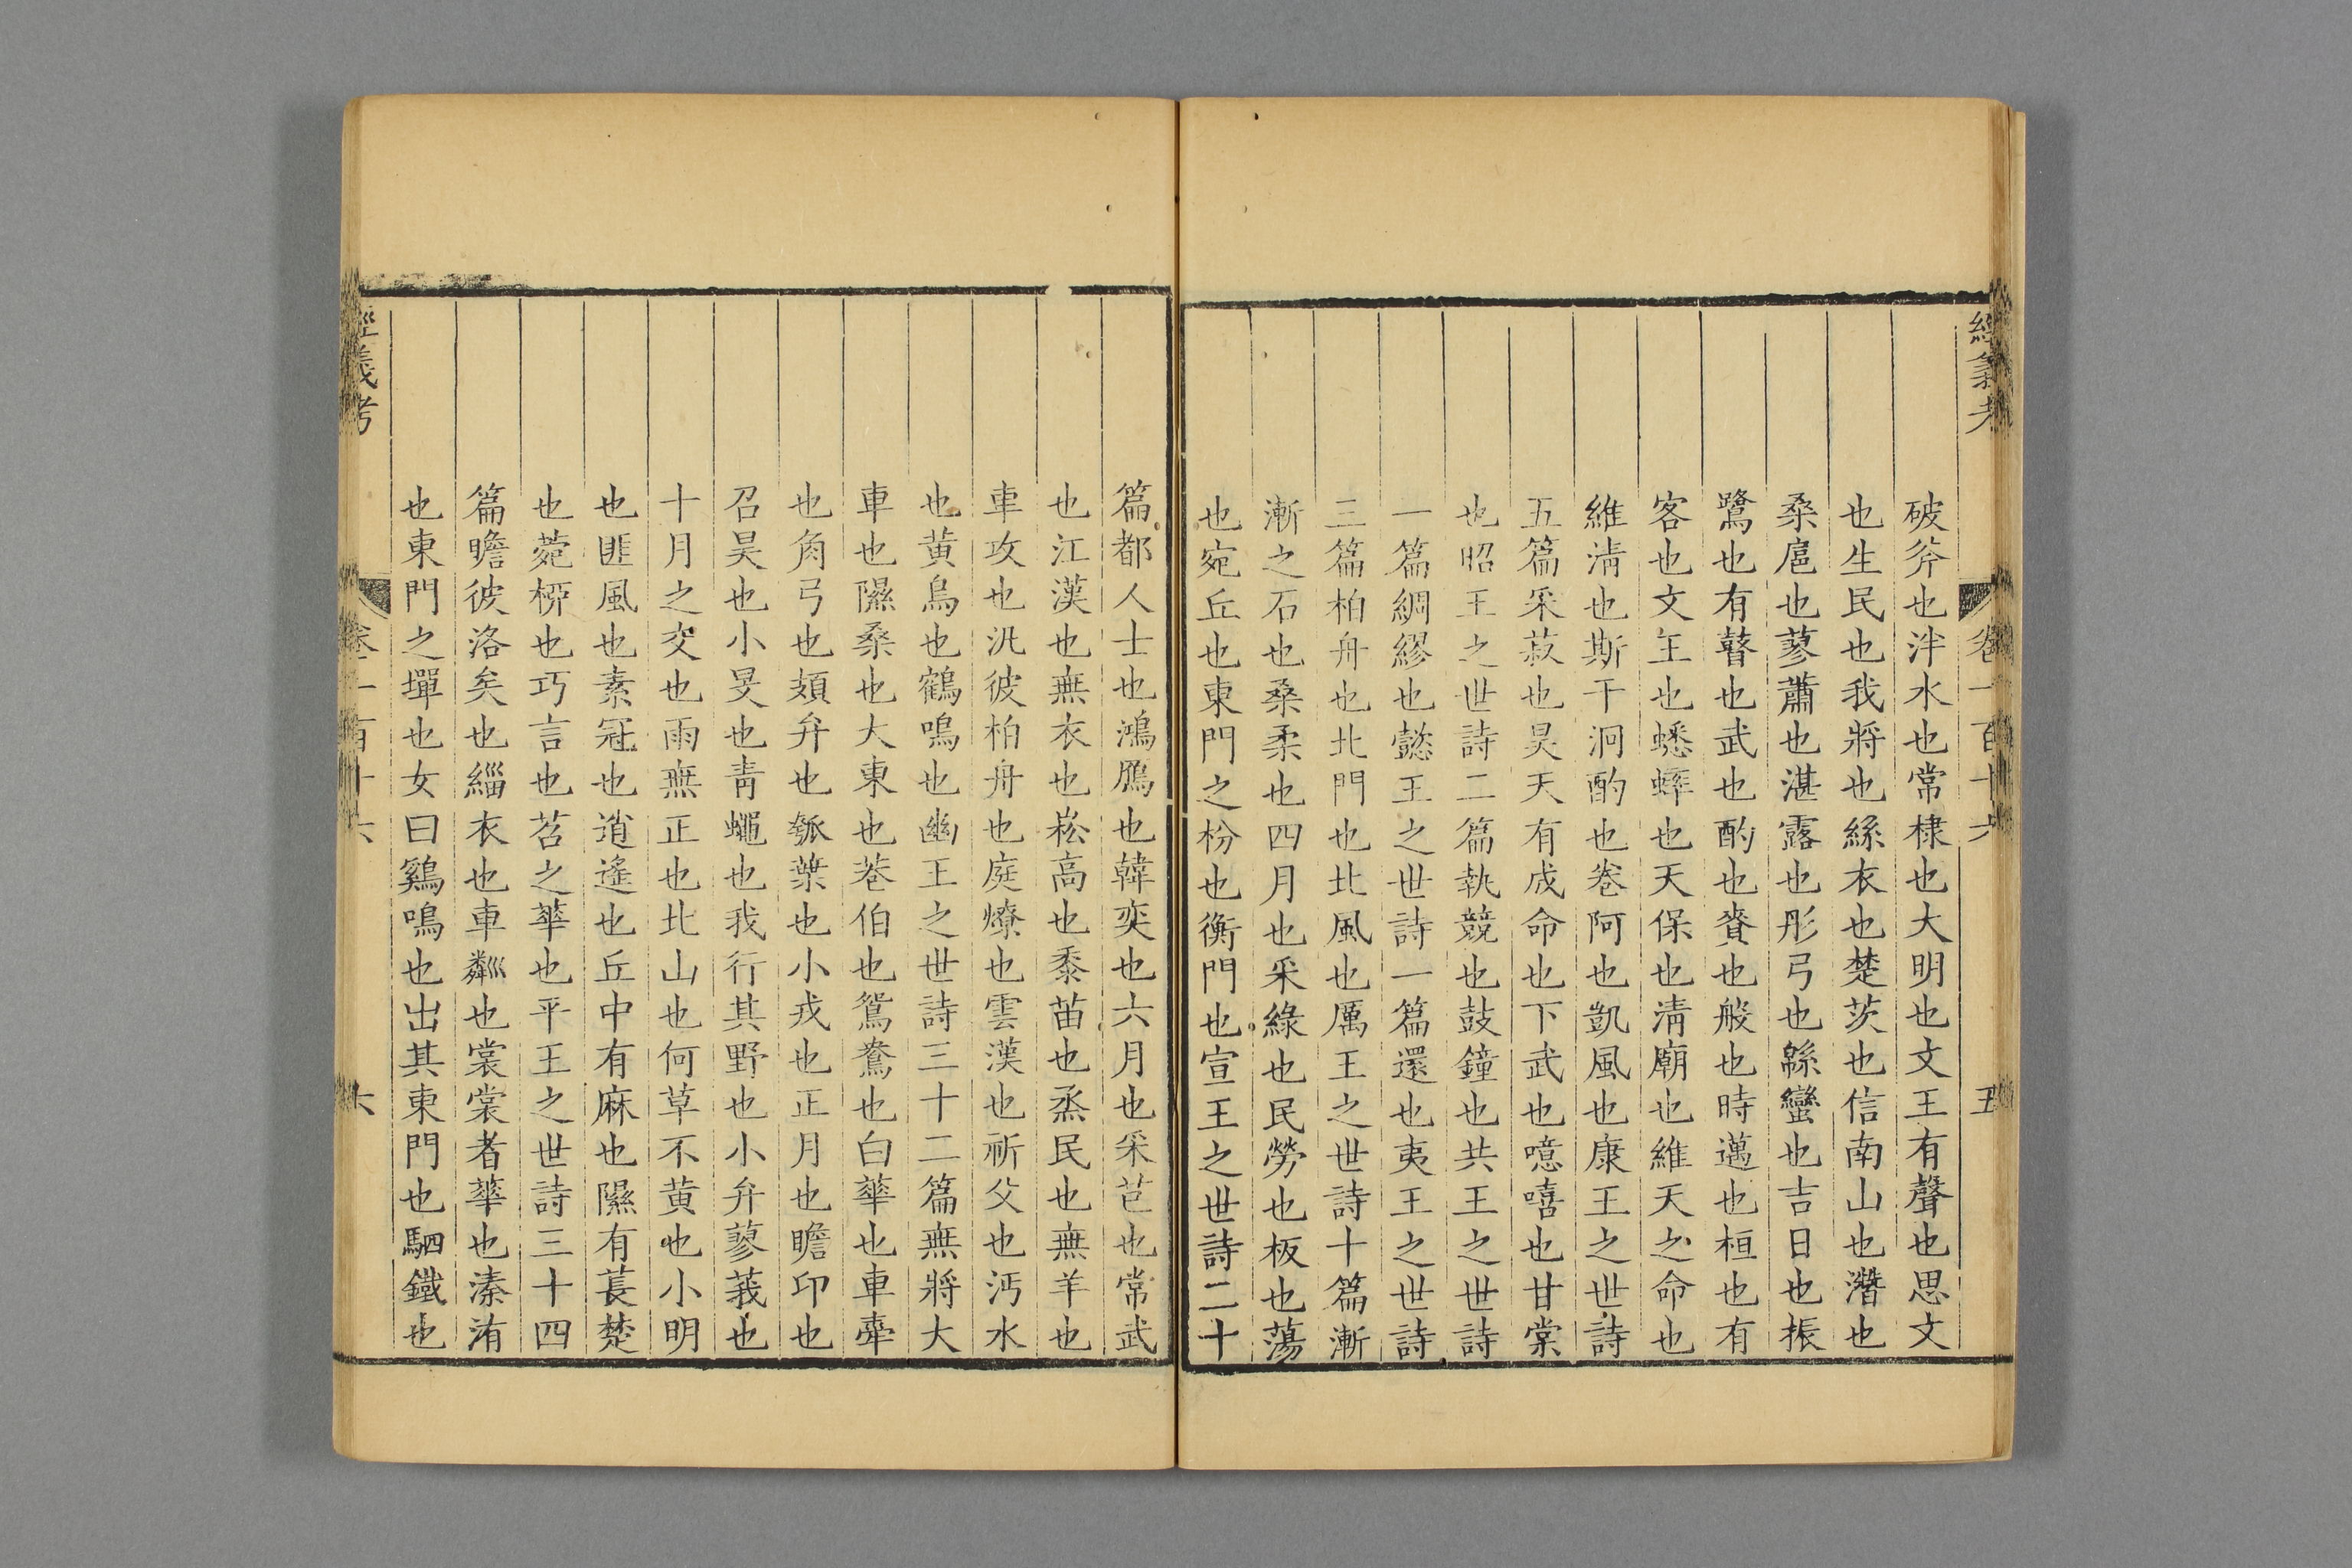 經義考
卷一百十六
五
破斧也泮水也常棣也大明也文王有聲也思文
也生民也我將也絲衣也楚茨也信南山也潛也
桑扈也蓼蕭也湛露也彤弓也緜蠻也吉日也振
鷺也有瞽也武也酌也賚也般也時邁也桓也有
客也文王也蟋蟀也天保也清廟也維天之命也
維清也斯干泂酌也卷阿也凱風也康王之世詩
五篇采菽也昊天有成命也下武也噫嘻也甘棠
也昭王之世詩二篇執競也鼓鐘也共王之世詩
一篇綢繆也懿王之世詩一篇還也夷王之世詩
三篇柏舟也北門也北風也厲王之世詩十篇漸
漸之石也桑柔也四月也采綠也民勞也板也蕩
也宛丘也東門之枌也衡門也宣王之世詩二十
篇都人士也鴻鴈也韓奕也六月也采芑也常武
也江漢也無衣也崧高也黍苗也烝民也無羊也
車攻也汎彼柏舟也庭燎也雲漢也祈父也沔水
也黃鳥也鶴鳴也幽王之世詩三十二篇無將大
車也隰桑也大東也巷伯也鴛鴦也白華也車舝
也角弓也頍弁也瓠葉也小戎也正月也瞻卬也
召旻也小旻也青蠅也我行其野也小弁蓼莪也
十月之交也雨無正也北山也何草不黃也小明
也匪風也素冠也逍遙也丘中有麻也隰有萇楚
也菀桺也巧言也苕之華也平王之世詩三十四
篇瞻彼洛矣也緇衣也車粼也裳裳者華也溱洧
也東門之墠也女曰鷄鳴也出其東門也駟鐵也
經義考
卷一百十六
六